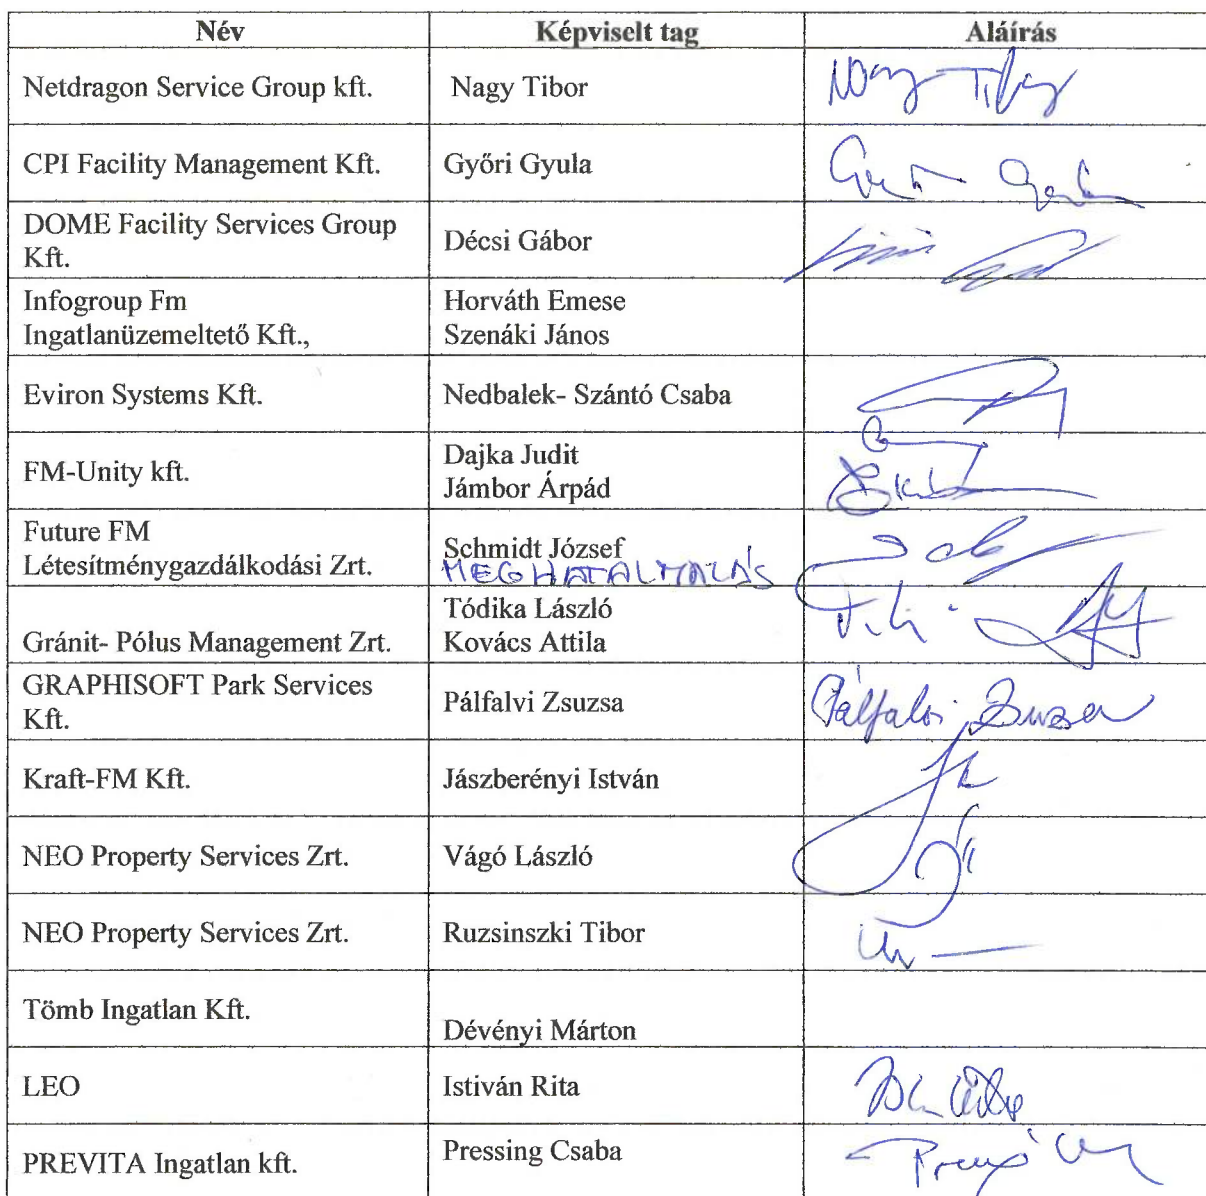 Név Képviselt tag Aláírás
Netdragon Service Group kft. Nagy Tibor Nagy Tibor
CPI Facility Management Kft. Győri Gyula
DOME Facility Services Group
Kft. Décsi Gábor
Infogroup Fm Horváth Emese
Ingatlanüzemeltető Kft., Szenáki János
Eviron Systems Kft. Nedbalek- Szántó Csaba
FM-Unity kft. Dajka Judit
Jámbor Árpád
Future FM
Létesítménygazdálkodási Zrt. Schmidt József
MEGHATALMAZÁS
Tódika László
Gránit- Pólus Management Zrt. Kovács Attila
GRAPHISOFT Park Services
Kft. Pálfalvi Zsuzsa Pálfalvi Zsuzsa
Kraft-FM Kft. Jászberényi István
NEO Property Services Zrt. Vágó László
NEO Property Services Zrt. Ruzsinszki Tibor
Tömb Ingatlan Kft. Dévényi Márton
LEO Istiván Rita
PREVITA Ingatlan kft. Pressing Csaba